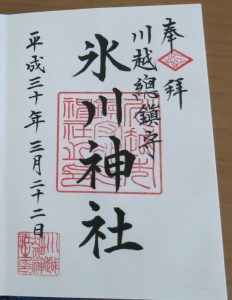 奉拝
川越總鎮守
氷川神社
平成三十年三月二十二日